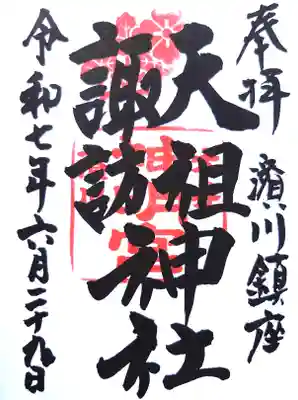 奉拝
濱川鎮座
天祖
諏訪
神社
令和七年六月二十九日